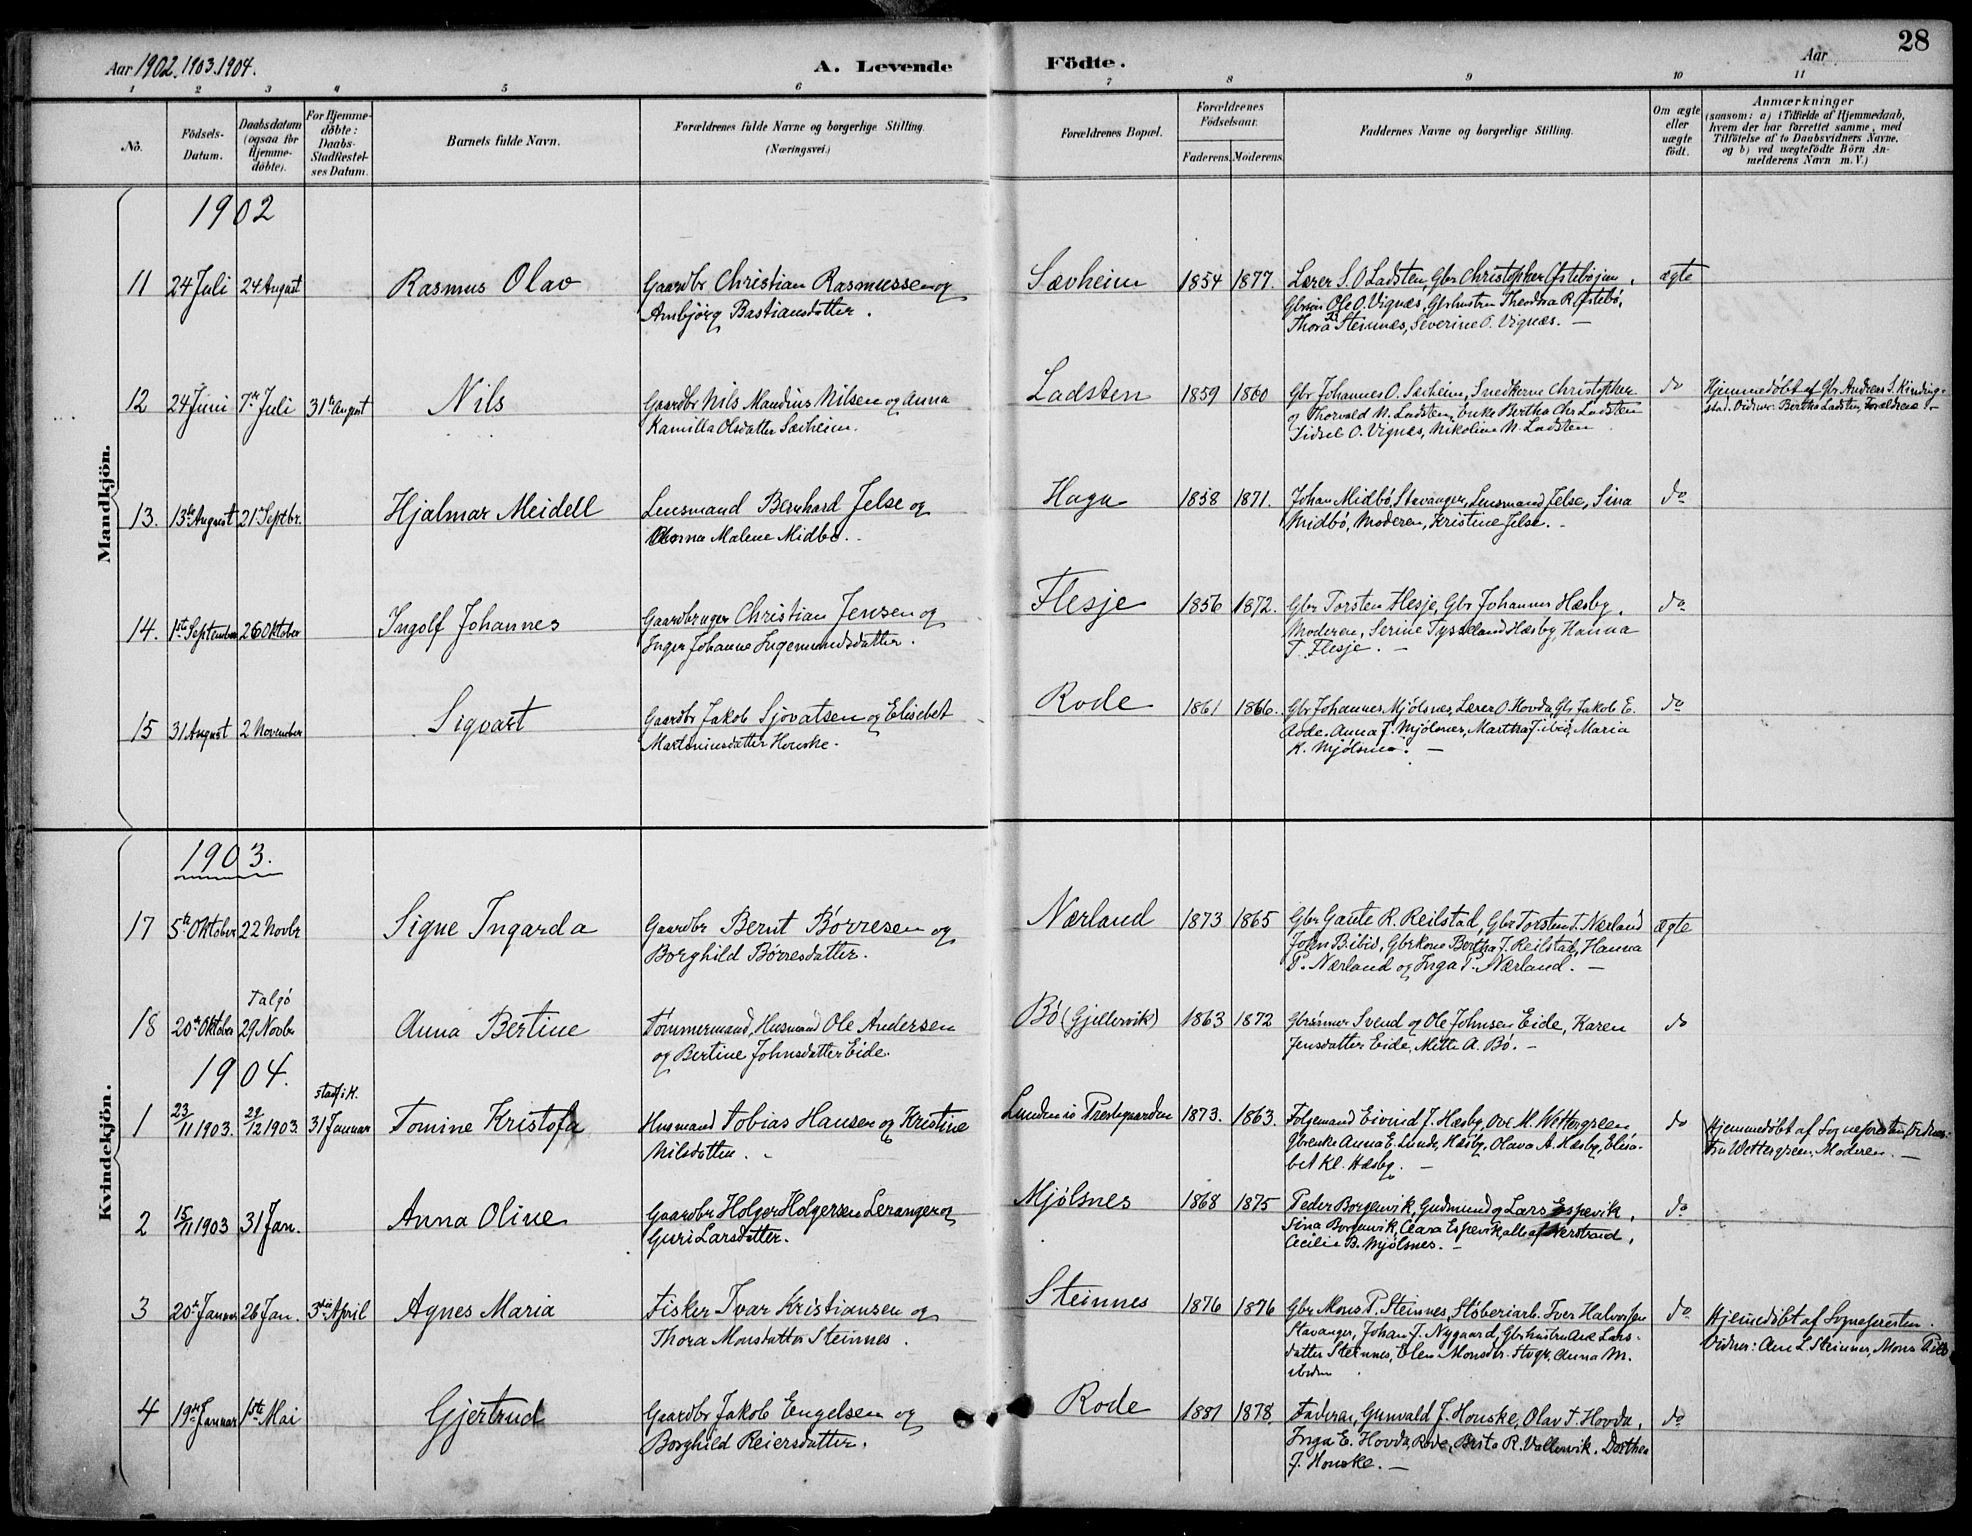 28
Aar 1902. 1903. 1904.
A. Levende
Födte.
Aar
1 2 3 4 5 6 7 8 9 10 11
No.
Födsels-
Datum.
Daabsdatum
(ogsaa for
Hjemme-
døbte).
For Hjemme-
döbte:
Daabs-
Stadfæstel-
ses Datum.
Barnets fulde Navn.
Forældrenes fulde Navne og borgerlige Stilling.
(Næringsvei.)
Forældrenes Bopæl.
Forældrenes
Födselsaar.
Faderens. Moderens.
Faddernes Navne og borgerlige Stilling.
Om ægte
eller
uægte
födt.
Anmærkninger
(saasom: a) i Tilfælde af Hjemmedaab,
hvem der har forrettet samme, med
Tilföielse af to Daabsvidners Navne,
og b) ved uægtefödte Börn An-
melderens Navn m. V.)
Mandkjön.
1902
11 24 Juli 24 August Rasmus Olav
Gaardbr Christian Rasmussen og
Anbjörg Bastiansdatter.
Sævheim 1854 1877.
Lærer S. O Ladsten, Gbr Christopher Østebø
Gbrsön Ole O. Vignæs, Gbrhustru Theodora R. Østebö,
Thora Steinnæs, Severine O. Vignæs. —
ægte
12 24 Juni 7de Juli 31te August Nils
Gaardbr Nils Mandius Nilsen og Anna
Kamilla Olsdatter Sævheim.
Ladsten 1859 1860
Gbr Johannes O. Sævheim, Snedkerne Christopher
og Thorvald N. Ladsten, Enke Bertha Chr Ladsten
Sidsel O. Vignæs, Nikoline N. Ladsten
do
Hjemmedøbt af Gbr Andreas S. Kinding-
stad. Vidner: Bertha Ladsten, Forældrene. —
13. 13de August 21 Septbr. Hjalmar Meidell
Lensmand Bernhard Jelse og
Anna Malene Midbö.
Haga 1858 1871.
Johan Midbö, Stavanger, Lensmand Jelse, Sina
Midbö, Moderen, Kristine Jelse. -
do
14. 1ste September 26 Oktober Ingolf Johannes
Gaardbruger Christian Jensen og
Inger Johanne Ingemundsdatter.
Flesje 1856 1872.
Gbr Torsten Flesje, Gbr Johannes Hæsby,
Moderen, Serine Tysseland Hæsby, Hanna
T. Flesje. —
do
15 31 August 2 November Sigvart
Gaardbr Jakob Sjovatsen og Elisabet
Martniusdatter Houske.
Rode 1861 1866.
Gbr Johannes Mjölsnes, Lærer O Hovda, Gbr Jakob E.
Rode. Anna J. Mjölsnes, Martha J. ibid, Maria
K. Mjölsnes. —
do
Kvindekjön.
1903.
17 5te Oktober 22 Novbr Signe Ingarda
Gaardbr Bernt Börresen og
Borghild Börresdatter.
Nærland 1873 1865
Gbr Gaute R. Reilstad, Gbr Torsten T. Nærland
John B. ibid, Gbrkone Bertha J. Reilstad, Hanna
T. Nærland og Inga T. Nærland. —
ægte
18 20de Oktober Talgö 29 Novbr Anna Bertine
Tømmermand, Husmand Ole Andersen
og Bertine Johnsdatter Eide.
Bö (Gjillervik) 1863 1872
Gbrsönner Svend og Ole Johnsen Eide, Karen
Jensdatter Eide, Mette A. Bö. —
do
1904.
1 23/11 1903. 29/12 1903. stadf. i K. 31 Januar Tomine Kristofa
Husmand Tobias Hansen og Kristine
Nilsdatter.
Lunden i Prestegaarden 1873. 1863.
Folgemand Eivind J. Hæsby, Ove M. Wettergreen
Gbrenke Anna E. Lunde, Hæsby, Olava A. Hæsby, Elisa-
bet Kl. Hæsby. —
do
Hjemmedøbt af Sognepresten. Vidner:
Fru Wettergreen, Moderen. —
2 15/11 1903 31 Jan. Anna Oline
Gaardbr Holger Holgersen Leranger og
Guri Larsdatter.
Mjölsnes 1868 1875
Peder Borgenvik, Gudmund og Lars Espevik,
Sina Borgenvik, Ceara Espevik, alle af Nerstrand,
Cecilie B. Mjölsnes. —
do
3 20de Januar 26 Jan. 3die April Agnes Maria
Fisker Ivar Kristiansen og
Thora Monsdatter Steinnes.
Steinnes 1876 1876
Gbr Mons P. Steinnes, Støberiarb. Iver Halvorsen
Stavanger, Johan J. Nygaard, Gbrhustru Ane Lars-
datter Steinnes, Elen Monsdr. Stvgr, Anna M.
ibidem
do
Hjemedöbt af Sognepresten.
Vidner: Ane L. Steinnes, Mons
4 19de Januar 1ste Mai Gjertrud
Gaardbr Jakob Engelsen og
Borghild Reiersdatter.
Rode 1881 1878
Faderen, Gunvald J. Houske, Olav T. Hovda,
Inga E. Hovda, Rode, Brita R. Vallervik. Dorthea
J. Houske. —
do